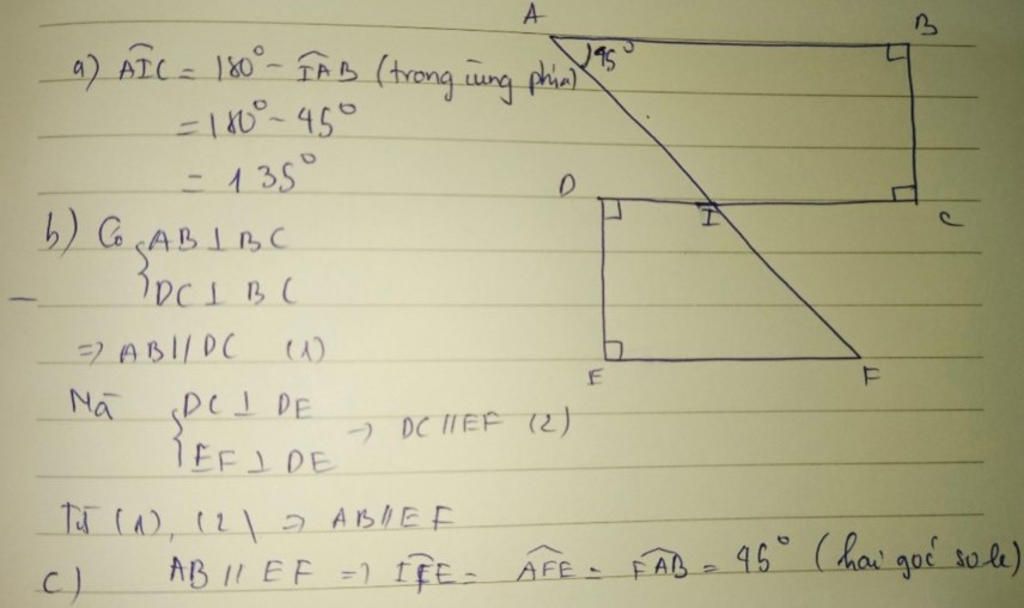 A
B
45°
a) AIC = 180° - IAB (trong cùng phía)
= 180° - 45°
= 135°
D
I
C
b) Có { AB ⊥ BC
DC ⊥ BC
=> AB // DC (1)
E
F
Mà { DC ⊥ DE
EF ⊥ DE
→ DC // EF (2)
Từ (1), (2) => AB // EF
c) AB // EF => IFE = AFE = FAB = 45° (hai góc so le)